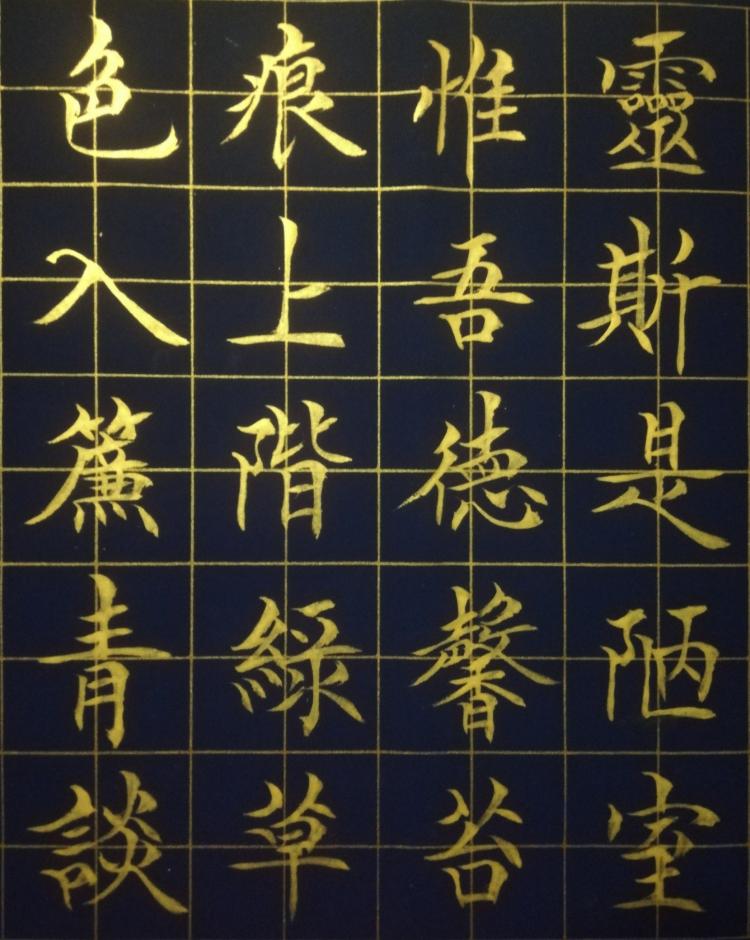 靈斯是陋室
惟吾德馨苔
痕上階綠草
色入簾青談